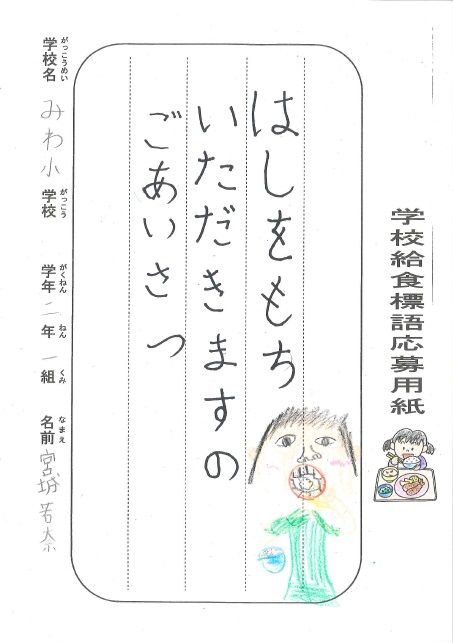 学校給食標語応募用紙
はしをもち
いただきますの
ごあいさつ
学校名 みわ小 学校 学年 二 年 一 組 名前 宮城 若奈
がっこうめい がっこう がくねん ねん くみ なまえ